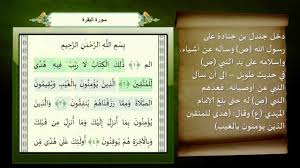 سورة البقرة
بِسْمِ اللَّهِ الرَّحْمَنِ الرَّحِيمِ
الم ﴿١﴾ ذَلِكَ الْكِتَابُ لَا رَيْبَ فِيهِ هُدًى
لِلْمُتَّقِينَ ﴿٢﴾ الَّذِينَ يُؤْمِنُونَ بِالْغَيْبِ وَيُقِيمُونَ
الصَّلَاةَ وَمِمَّا رَزَقْنَاهُمْ يُنْفِقُونَ ﴿٣﴾ وَالَّذِينَ
يُؤْمِنُونَ بِمَا أُنْزِلَ إِلَيْكَ وَمَا أُنْزِلَ مِنْ قَبْلِكَ
وَبِالْآخِرَةِ هُمْ يُوقِنُونَ ﴿٤﴾ أُولَئِكَ عَلَى هُدًى مِنْ
دخل جندل بن جنادة على
رسول الله (ص) وسأله عن أشياء،
وإسلامه على يد النبي (ص)
في حديث طويل – إلى أن سأل
النبي عن أوصيائه. فعدهم
النبي (ص) له حتى بلغ الإمام
المهدي (ع) وقال: (هدى للمتقين
الذين يؤمنون بالغيب)